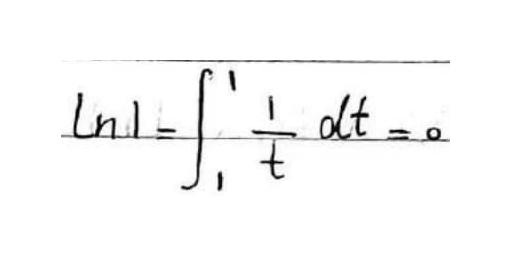 ln1 = ∫₁¹ 1/t dt = 0